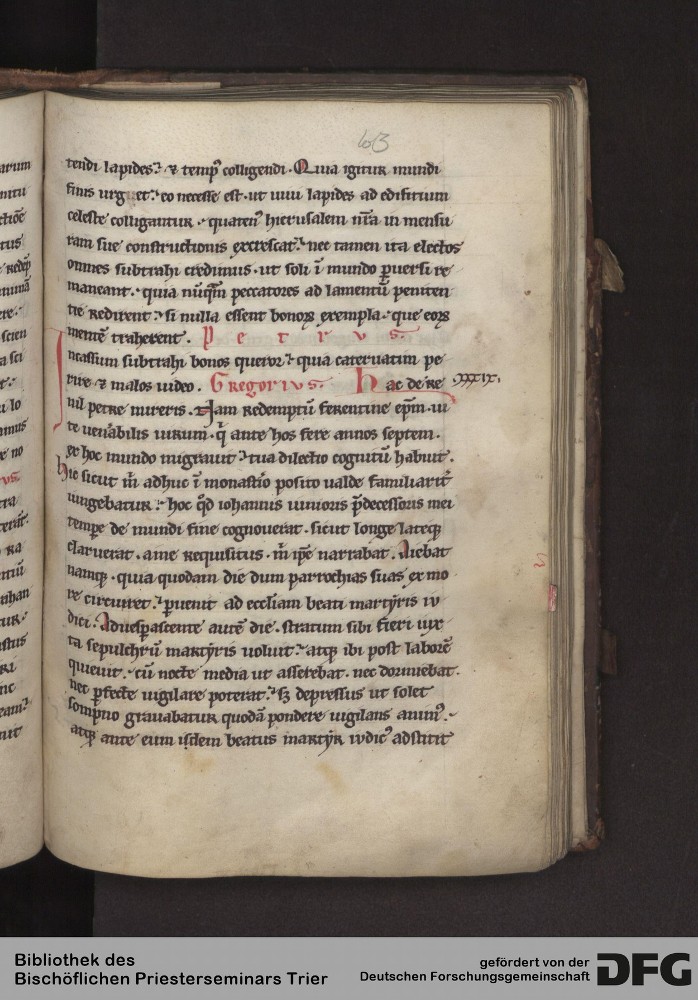 63
tendi lapides. & temp᾽ colligendi. Quia igitur mundi
finis urguet. eo necesse est. ut uiui lapides ad edifitium
celeste colligantur. quaten᾽ hierusalem nr̄a in mensu
ram sue constructionis excrescat. nec tamen ita electos
omnes subtrahi credimus. ut soli ī mundo ꝑuersi re
maneant. quia nūqm̄ peccatores ad lamentū peniten
tie redirent. si nulla essent bonoꝝ exempla. que eoꝝ
mentē traherent. Petrus.
Incassum subtrahi bonos queror. qua cateruatim pe
rire & malos uideo. Gregorius. Hac de re xxxix.
nil petre mireris. Nam redemptū ferentine ep̄m. ui
te uen̄abilis uirum. q̄ ante hos fere annos septem.
ex hoc mundo migrauit. tua dilectio cognitū habuit.
Hic sicut m̄ adhuc ī monastio posito ualde familiarit᾽
iungebatur. hoc qd̄ iohannis iunioris p̄decessoris mei
tempe de mundi fine cognouerat. sicut longe lateqꝫ
claruerat. a me requisitus. m̄ ip̄e narrabat. Aiebat
namqꝫ. quia quodam die dum parrochias suas ex mo
re circuiret. ꝑuenit ad eccl̄iam beati martẏris iu
dici. Aduesꝑascente autē die. stratum sibi fieri iux
ta sepulchrū martẏris uoluit. atqꝫ ibi post laborē
quieuit. cū nocte media ut asserebat. nec dormiebat.
nec ꝑfecte uigilare poterat. sꝫ depressus ut solet
sompno grauabatur quodā pondere uigilans anim᾽.
atqꝫ ante eum isdem beatus martẏr iudic᾽ adstitit
Bibliothek des
Bischöflichen Priesterseminars Trier
gefördert von der
Deutschen Forschungsgemeinschaft DFG